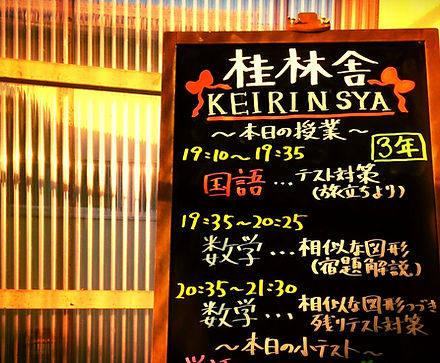 桂林舎
KEIRINSYA
～本日の授業～
3年
19:10～19:35
国語…テスト対策
(旅立ちより)
19:35～20:25
数学…相似な図形
(宿題解説)
20:35～21:30
数学…相似な図形つづき
残りテスト対策
～本日の小テスト～